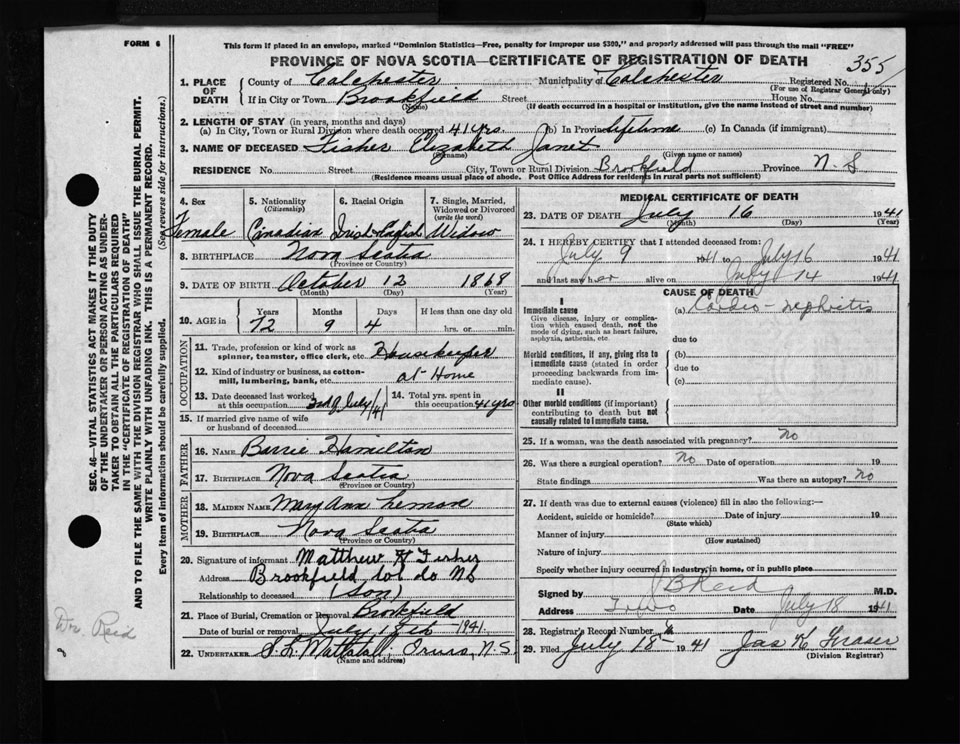 FORM 6
This form if placed in an envelope, marked "Dominion Statistics—Free, penalty for improper use $300," and properly addressed will pass through the mail "FREE"
PROVINCE OF NOVA SCOTIA—CERTIFICATE OF REGISTRATION OF DEATH 355
1. PLACE OF DEATH County of Colchester Municipality of Colchester Registered No.
(For use of Registrar General only)
If in City or Town Brookfield Street House No.
(Name) (If death occurred in a hospital or institution, give the name instead of street and number)
2. LENGTH OF STAY (in years, months and days)
(a) In City, Town or Rural Division where death occurred 41 yrs. (b) In Province lifetime (c) In Canada (if immigrant)
3. NAME OF DECEASED Fisher Elizabeth Janet
(Surname) (Given name or names)
RESIDENCE No. Street City, Town or Rural Division Brookfield Province N.S
(Residence means usual place of abode. Post Office Address for residents in rural parts not sufficient)
4. Sex 5. Nationality (Citizenship) 6. Racial Origin 7. Single, Married, Widowed or Divorced (write the word)
Female Canadian Widow
8. BIRTHPLACE Nova Scotia
(Province or Country)
9. DATE OF BIRTH October 12 1868
(Month) (Day) (Year)
10. AGE in Years Months Days If less than one day old
72 9 4 hrs. or min.
OCCUPATION
11. Trade, profession or kind of work as spinner, teamster, office clerk, etc. Housekeeper
12. Kind of industry or business, as cotton-mill, lumbering, bank, etc. at Home
13. Date deceased last worked at this occupation 3rd of July/41 14. Total yrs. spent in this occupation 41 yrs
15. If married give name of wife or husband of deceased
FATHER
16. NAME Barrie Hamilton
17. BIRTHPLACE Nova Scotia
(Province or Country)
MOTHER
18. MAIDEN NAME Mary Ann
19. BIRTHPLACE Nova Scotia
(Province or Country)
20. Signature of informant Matthew H Fisher
Address Brookfield Col Co NS
Relationship to deceased (Son)
21. Place of Burial, Cremation or Removal Brookfield
Date of burial or removal July 18th 1941.
22. UNDERTAKER S.L. Mattatall, Truro, N.S.
(Name and address)
MEDICAL CERTIFICATE OF DEATH
23. DATE OF DEATH July 16 1941
(Month) (Day) (Year)
24. I HEREBY CERTIFY that I attended deceased from:
July 9 1941 to July 16 1941
and last saw her alive on July 14 1941
CAUSE OF DEATH
I
Immediate cause (a) Cardio-nephritis
Give disease, injury or complication which caused death, not the mode of dying, such as heart failure, asphyxia, asthenia, etc.
due to
Morbid conditions, if any, giving rise to immediate cause (stated in order proceeding backwards from immediate cause).
(b)
due to
(c)
II
Other morbid conditions (if important) contributing to death but not causally related to immediate cause.
25. If a woman, was the death associated with pregnancy? No
26. Was there a surgical operation? No Date of operation 19
State findings Was there an autopsy? No
27. If death was due to external causes (violence) fill in also the following:—
Accident, suicide or homicide? Date of injury 19
(State which)
Manner of injury
(How sustained)
Nature of injury
Specify whether injury occurred in industry, in home, or in public place
Signed by J B Reid M.D.
Address Truro Date July 18 1941
28. Registrar's Record Number
29. Filed July 18 1941 Jas K Fraser
(Division Registrar)
SEC. 46—VITAL STATISTICS ACT MAKES IT THE DUTY
OF THE UNDERTAKER OR PERSON ACTING AS UNDER-
TAKER TO OBTAIN ALL THE PARTICULARS REQUIRED
IN THE "CERTIFICATE OF REGISTRATION OF DEATH"
AND TO FILE THE SAME WITH THE DIVISION REGISTRAR WHO SHALL ISSUE THE BURIAL PERMIT.
WRITE PLAINLY WITH UNFADING INK. THIS IS A PERMANENT RECORD.
Every item of information should be carefully supplied. (See reverse side for instructions.)
Dr. Reid